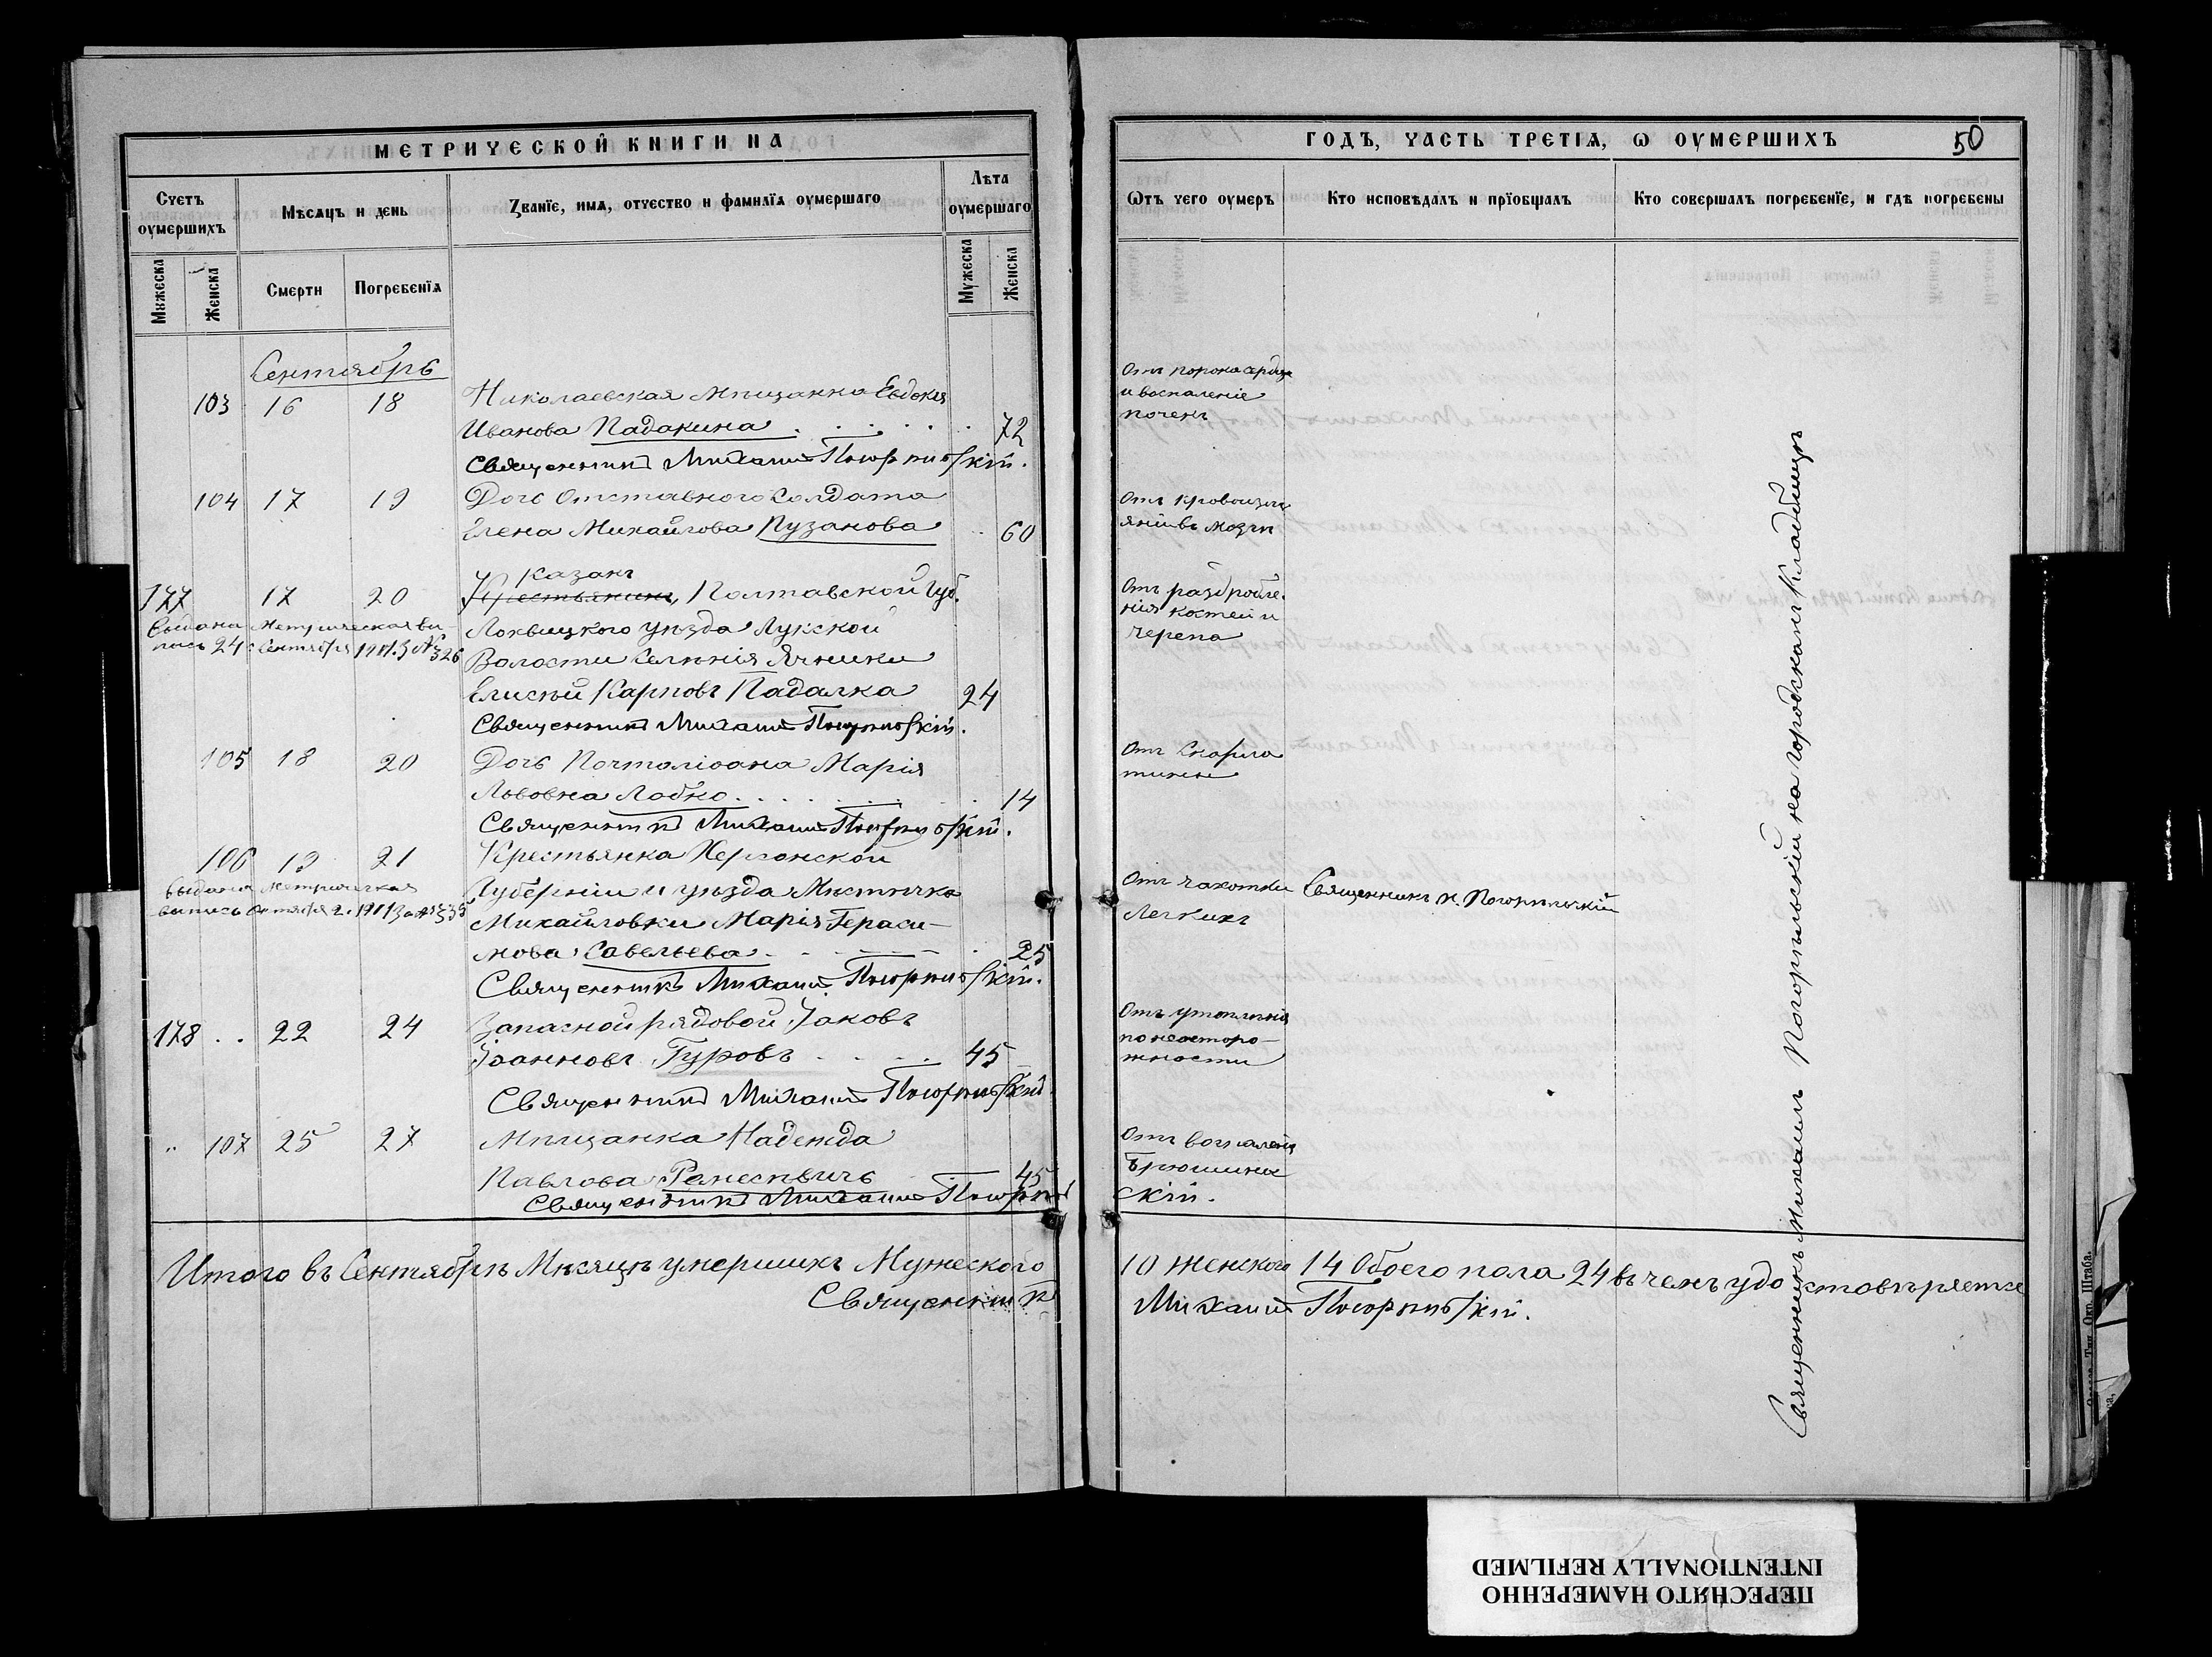 МЕТРИЧЕСКОЙ КНИГИ НА
Счетъ оумершихъ
Мѣсяцъ и день
Званїе, имя, отчество и фамилїя оумершаго
Лѣта оумершаго
Мужеска
Женска
Смерти
Погребенїя
Мужеска
Женска
Сентябрь
103 16 18 Николаевская Мѣщанка Евдокія
Иванова Падакина 72
Священникъ Михаилъ Погорѣльскій.
104 17 19 Дочь Отставного Солдата
Елена Михайлова Пузанова 60
Казакъ
177 17 20 Крестьянинъ, Полтавской Губ.
Выдана Метрическая вы-
пись 24 Сентября 1901 З № 326
Лохвицкого уѣзда Лукской
Волости Селенія Ячники
Елисѣй Карповъ Падалка 24
Священникъ Михаилъ Погорѣльскій.
105 18 20 Дочь Почталіона Марія
Львовна Лобко 14
Священникъ Михаилъ Погорѣльскій.
106 19 21 Крестьянка Херсонской
Выдана Метрическая
выпись Октября 2. 1901 За №
Губерніи и уѣзда Мѣстечка
Михайловки Марія Гераси-
мова Савельева 25
Священникъ Михаилъ Погорѣльскій.
178 22 24 Запасной рядовой Іаковъ
Іоанновъ Гуровъ 45
Священникъ Михаилъ Погорѣльскій.
107 25 27 Мѣщанка Надежда
Павлова 45
Священникъ Михаилъ Погорѣль
Итого въ Сентябрѣ Мѣсяцѣ умершихъ Мужеского
Священникъ
ГОДЪ, ЧАСТЬ ТРЕТІЯ, Ѡ ОУМЕРШИХЪ
50
Ѡтъ чего оумеръ
Кто исповѣдалъ и прїобщалъ
Кто совершалъ погребенїе, и гдѣ погребены
Отъ порока сердца
и воспаленіе
почекъ
Отъ кровоизлі
янія въ мозгъ
Отъ раздробле-
нія костей и
черепа
Отъ Скарла
тины
Отъ чахотки
Легкихъ
Священникъ М. Погорѣльскій
Отъ утопленія
по неосторо-
жности
Отъ воспаленія
Брюшины
скій.
Священникъ Михаилъ Погорѣльскій на городскомъ Кладбищѣ
10 Женского 14 Обоего пола 24 въ чемъ удостовѣряется
Михаилъ Погорѣльскій.
Тип. Окр. Штаба.
ПЕРЕСНЯТО НАМЕРЕННО
INTENTIONALLY REFILMED